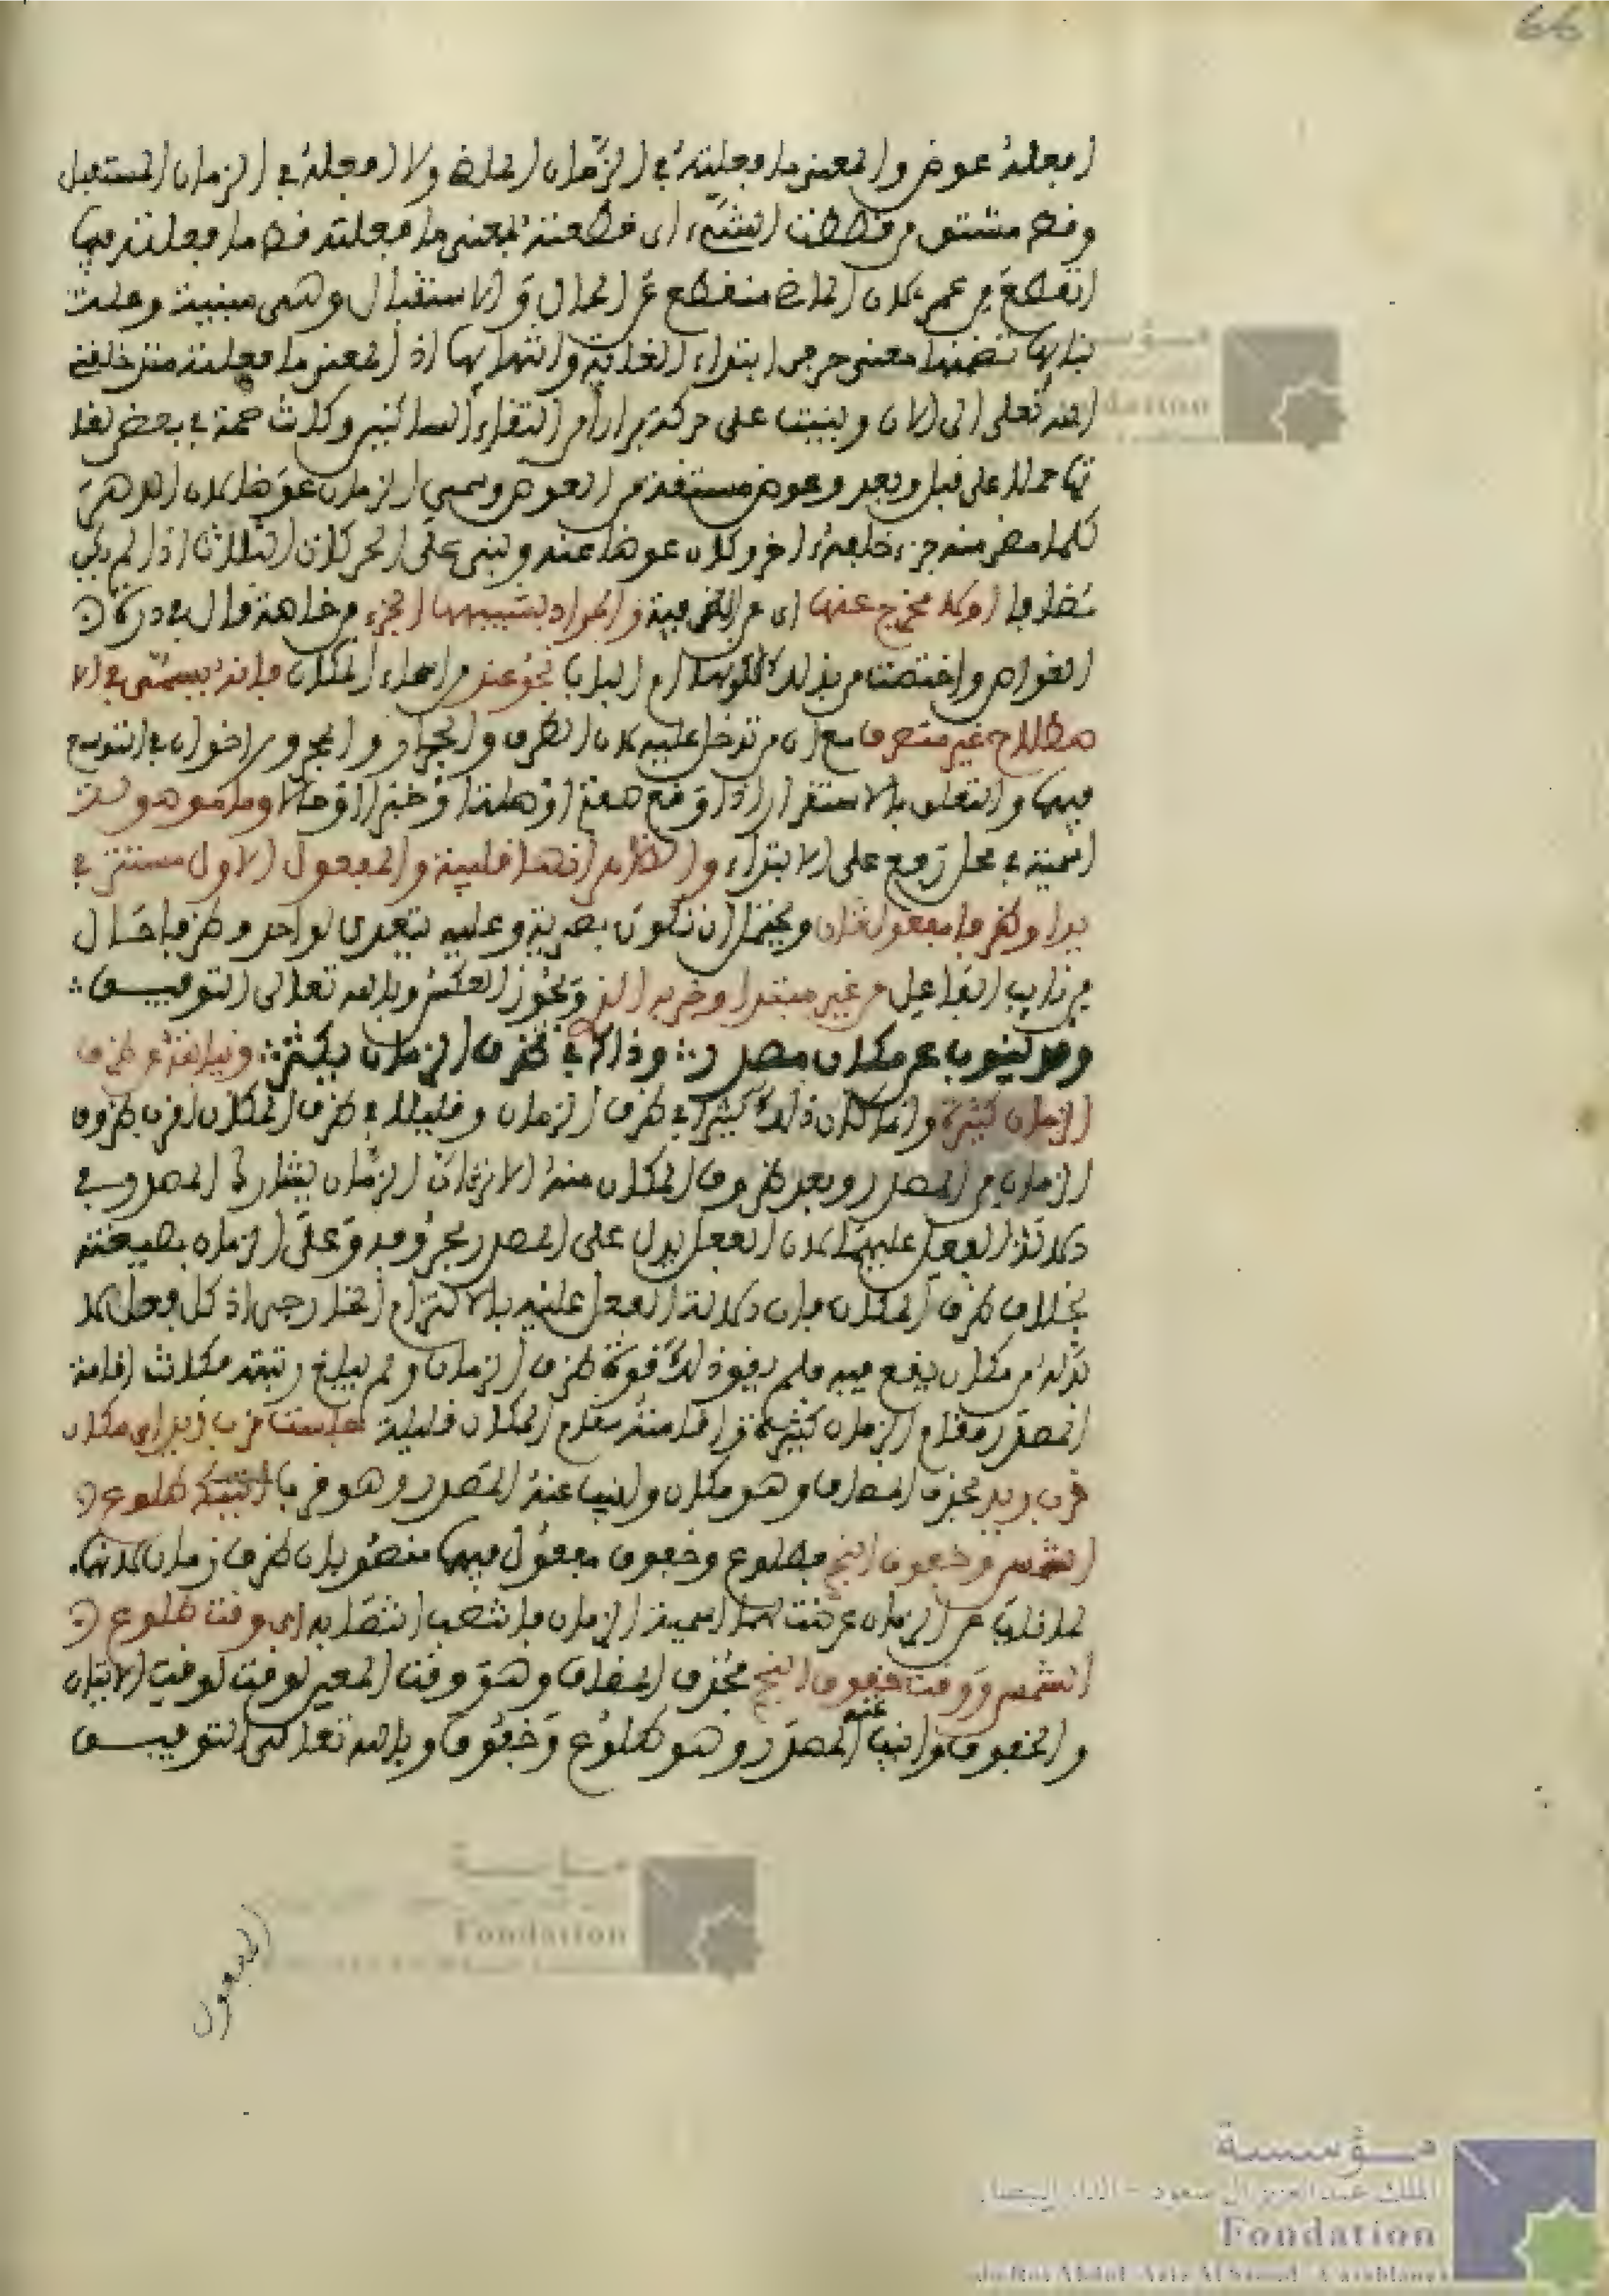 66
افعله عوض والمعنى ما فعلته في الزمان الماض ولا افعله في الزمان المستقبل
وقط مشتق من قططت الشيء اى قطعته فمعنى ما فعلته قط ما فعلته فيما
انقطع من عمر لان الماض منقطع عن الحال والاستقبال وهى مبنية وعلت
بنايها تضمنها معنى حرفى ابتداء الغاية وانتهايها اذ المعنى ما فعلته منذ خلقنى
الله تعلى الى الان وبنيت على حركة فرارا من التقاء الساكنين وكانت ضمة في بعض لغا
تها حملا على قبل وبعد وعوض مشتقة من العوض وسمي الزمان عوضا لان الدهر
كلما مضى منه جزء خلفه اخر وكان عوضا عنه وبنى على الحركات الثلاث اذا لم يكن
مضافا اولا يخرج عنها اى عن الظرفية والمراد بشبهها الجر من خاصة قال في درة
الغواص واختصت من بذلك لكونها ام الباب نحو عند من اسماء المكان فانه يسمى في الا
صطلاح غير متصرف مع ان من تدخل عليه لان الظرف والجار والمجرور اخوان في التوسع
فيهما والتعلق بالاستقرار اذا وقع صفة او صلة او خبرا او حالا وما موصولة
اسمية في محل رفع على الابتداء والظاهر انها قلبية والمفعول الاول مستتر في
يرا وظرفا مفعول ثان ويحتمل ان تكون بصرية وعليه يتعدى لواحد وظرفا حال
من نايب الفاعل من غير مبتدا وخبره الذ ويجوز العكس وبالله تعالى التوفيق
وقد ينوب عن مكان مصدر وذاك في ظرف الزمان يكثر ونيابته عن ظرف
الزمان كثيرة وانما كان ذلك كثيرا في ظرف الزمان وقليلا في ظرف المكان لقرب ظروف
الزمان من المصدر وبعد ظروف المكان منه الا ترى ان الزمان يشارك المصدر في
دلالة الفعل عليهما لان الفعل يدل على المصدر بحروفه وعلى الزمان بصيغته
بخلاف ظرف المكان فان دلالة الفعل عليه بالالتزام الخارجى اذ كل فعل لا
بد له من مكان يقع فيه فلم يقو ذلك قوة ظرف الزمان ولم يبلغ رتبته فكانت اقامة
المصدر مقام الزمان كثيرة واقامته مقام المكان قليلة جلست قرب زيد اى مكان
قرب زيد فحذف المضاف وهو مكان وانيب عنه المصدر وهو قرب اتيتك طلوع
الشمس وخفوق النجم فطلوع وخفوق مفعول فيهما منصوبان ظرف زمان لانهما
لما نابا عن الزمان عرضت لهما اسمية الزمان فانتصب انتصابه اى وقت طلوع
الشمس ووقت خفوق النجم فحذف المضاف وهو وقت المعين لوقت لوقت الاتيان
والخفوق وانيب عنه المصدر وهو طلوع وخفوق وبالله تعالى التوفيق
المفعول
مؤسسة
الملك عبد العزيز آل سعود - الدار البيضاء
Fondation
du Roi Abdul-Aziz Al Saoud - Casablanca